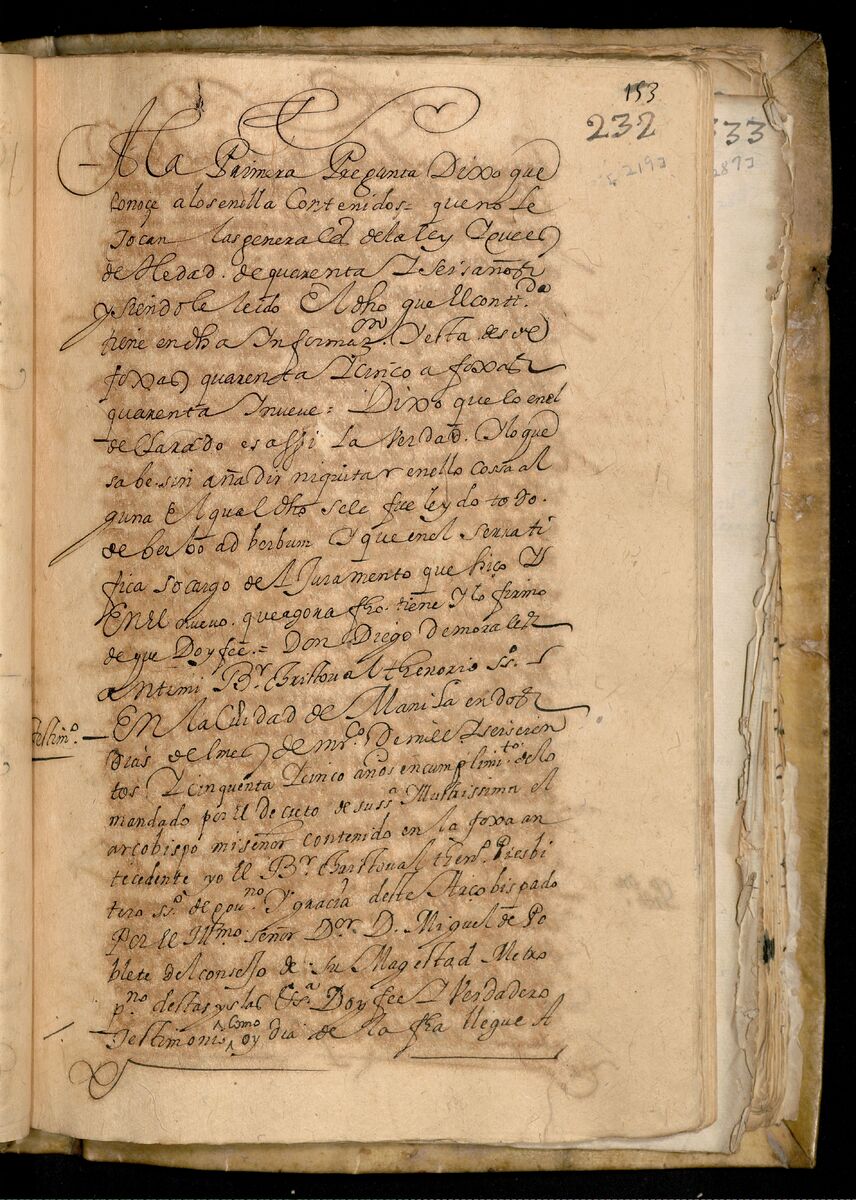 153
232
333
2193
2873
A la Primera Pregunta Dixo que
conoçe a los en ella Contenidos = que no le
tocan las general.es de la ley Y que es
de Hedad. de quarenta Y seis años
y siendole leido El dho que El contt.do
tiene en dha Informaz.on Y esta desde
foxas quarenta Y cinco a foxas
quarenta Y nueve = Dixo que lo en el
declarado es assi la Verdad. Y lo que
sabe. sin añadir ni quitar en ello cossa al
guna El qual dho se le fue leydo todo.
de berbo ad berbum Y que en el se rrati
fica so cargo del Juramento que hiço Y
En El nuevo. que agora fho. tiene Y lo firmo
de que Doy fee. = Don Diego de morales
ante mi B.r Christoual thenorio ss.o
Testim.o
En la Ciudad de Manila en dos
dias del mes de m.rço De mill Y seiscien
tos Y cinquenta Y cinco años en cumplimi.to de lo
mandado por El decreto de su ss.a Illustrissima el
arcobispo mi señor contenido en la foxa an
tecedente yo El B.r Christoual then.o Presbi
tero ss.o de gou.no Y gracia deste Arcobispado
Por El Ill.mo señor D.or D. Miguel de Po
blete del consejo de su Magestad Metro
p.no destas yslas Ett.a Doy fee Y Verdadero
Testimonio como oy dia de la fha llegue A